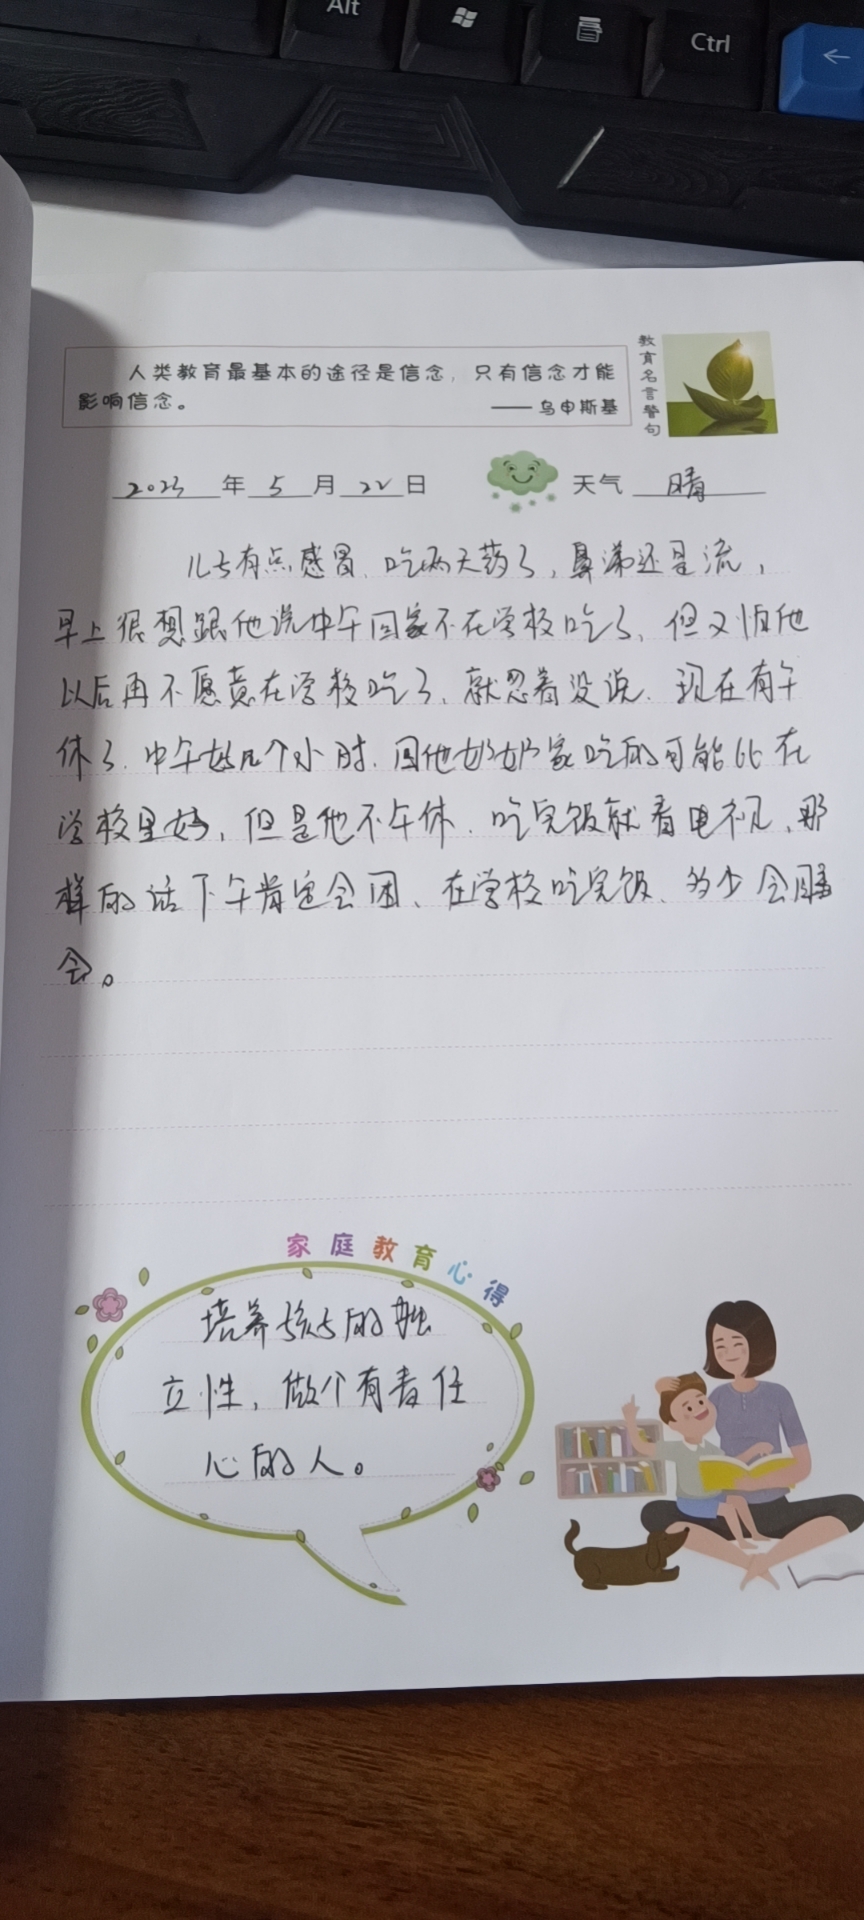 Alt
Ctrl
←
人类教育最基本的途径是信念，只有信念才能
影响信念。
—— 乌申斯基
教育名言警句
2023年5月22日
天气 晴
儿子有点感冒、吃两天药了，鼻涕还是流，
早上很想跟他说中午回家不在学校吃了、但又怕他
以后再不愿意在学校吃了、就忍着没说．现在有午
休了．中午好几个小时．回他奶奶家吃的可能比在
学校里好，但是他不午休．吃完饭就看电视、那
样的话下午肯定会困、在学校吃完饭、多少会睡
会。
家庭教育心得
培养孩子的独
立性，做个有责任
心的人。